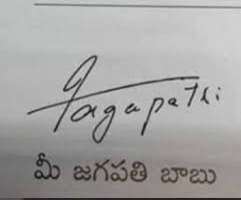 Jagapathi
మీ జగపతి బాబు